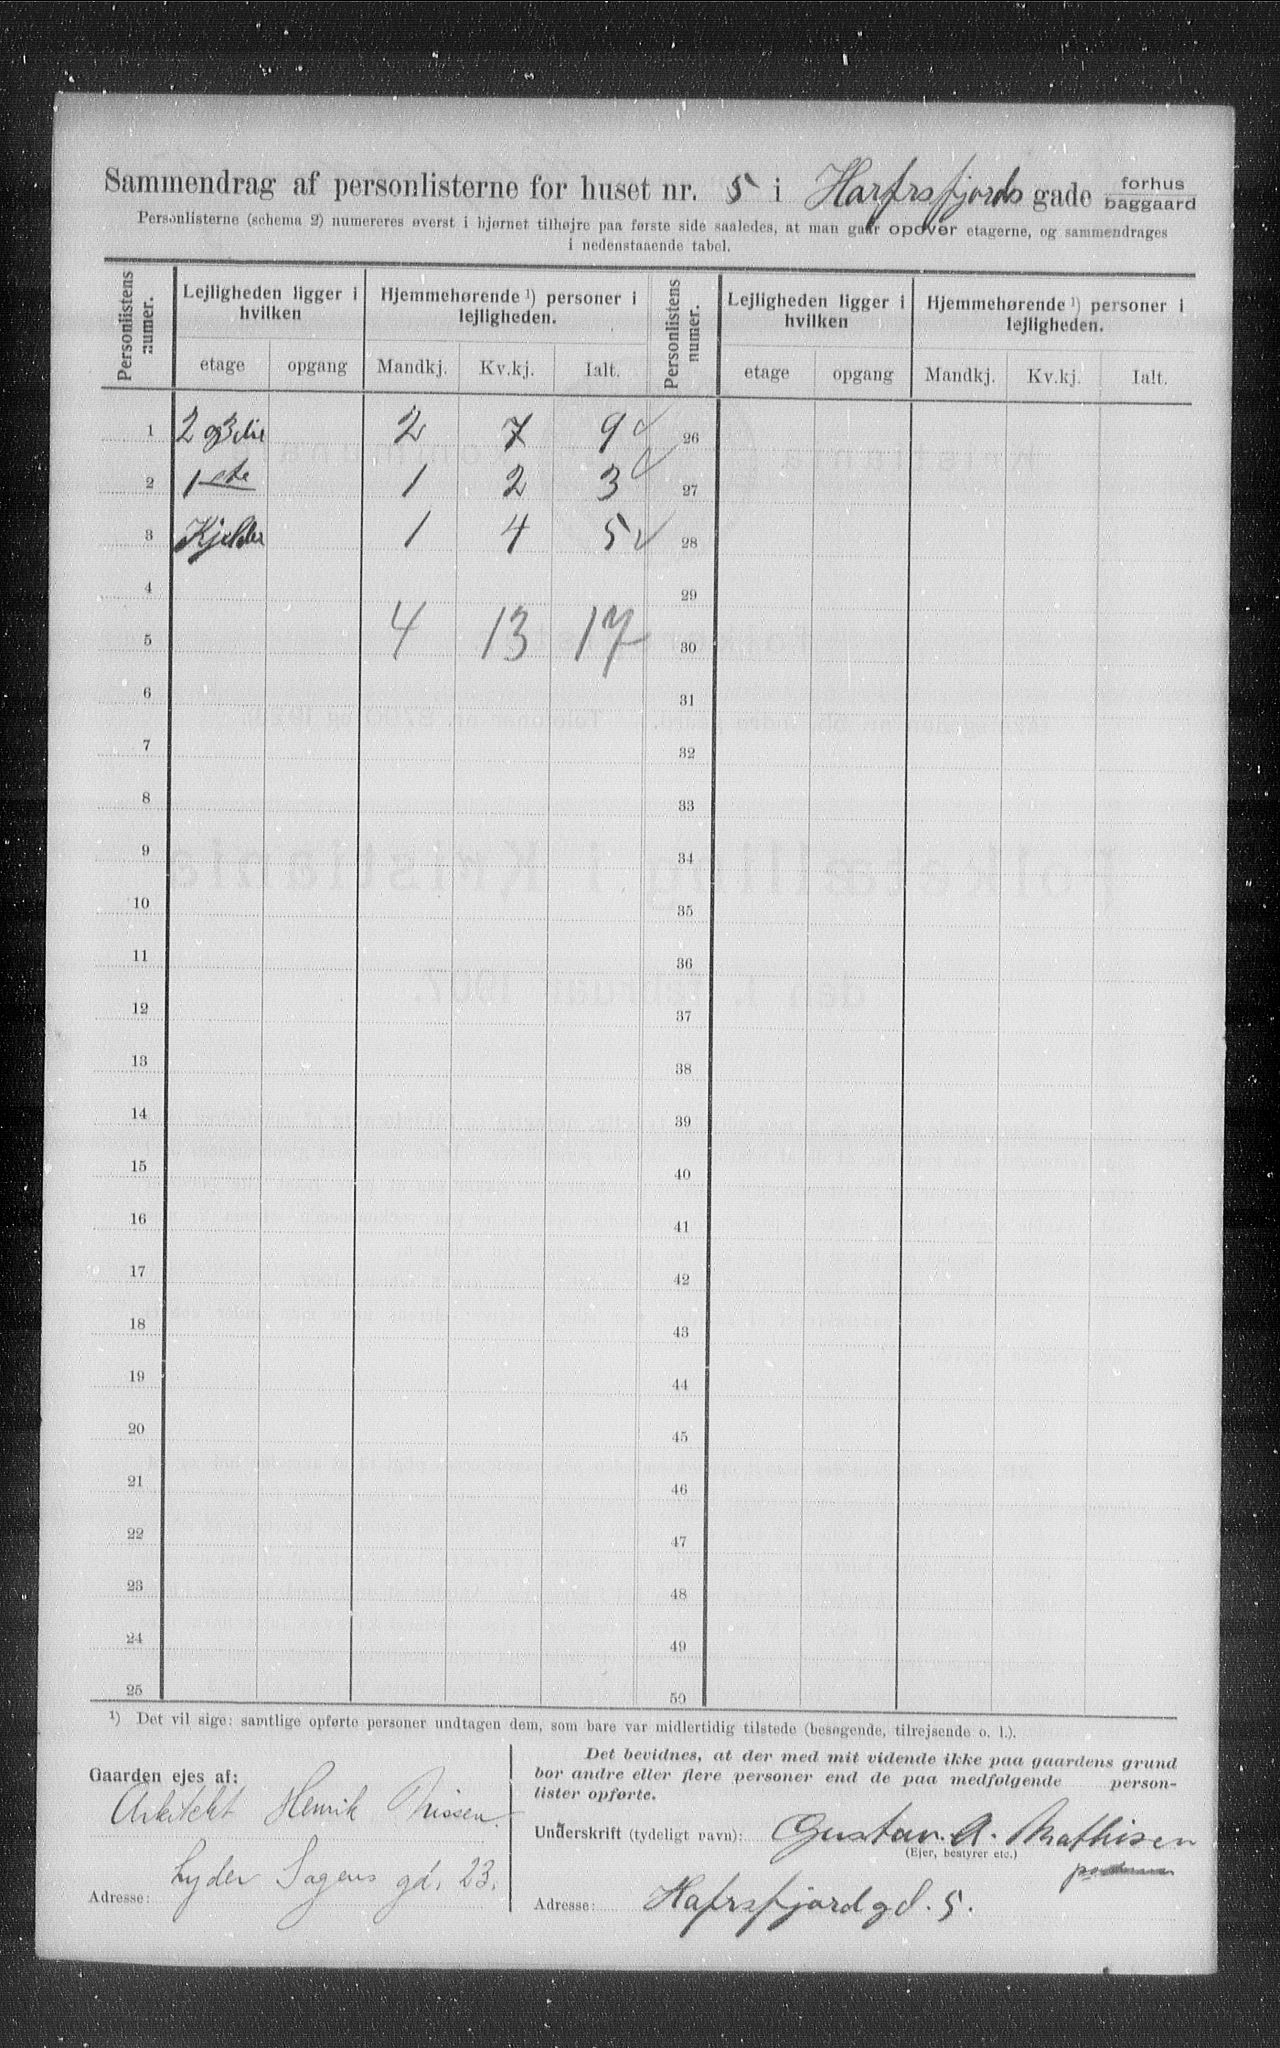 Sammendrag af personlisterne for huset nr. 5 i Harfrsfjords gade forhus
baggaard
Personlisterne (schema 2) numereres øverst i hjørnet tilhøjre paa første side saaledes, at man gaar opover etagerne, og sammendrages
i nedenstaaende tabel.
Personlistens numer. Lejligheden ligger i hvilken Hjemmehørende ¹) personer i lejligheden. Personlistens numer. Lejligheden ligger i hvilken Hjemmehørende ¹) personer i lejligheden.
etage opgang Mandkj. Kv.kj. Ialt. etage opgang Mandkj. Kv.kj. Ialt.
1 2 og 3die 2 7 9 ✓ 26
2 1ste 1 2 3 ✓ 27
3 Kjelder 1 4 5 ✓ 28
4 29
5 4 13 17 30
6 31
7 32
8 33
9 34
10 35
11 36
12 37
13 38
14 39
15 40
16 41
17 42
18 43
19 44
20 45
21 46
22 47
23 48
24 49
25 50
¹) Det vil sige: samtlige opførte personer undtagen dem, som bare var midlertidig tilstede (besøgende, tilrejsende o. l.).
Gaarden ejes af:
Arkitekt Henrik Nissen.
Lyder Sagens gd. 23.
Adresse:
Det bevidnes, at der med mit vidende ikke paa gaardens grund
bor andre eller flere personer end de paa medfølgende person-
lister opførte.
Underskrift (tydeligt navn): Gustav. A. Mathisen
(Ejer, bestyrer etc.)
Adresse: Hafrsfjordgd. 5.